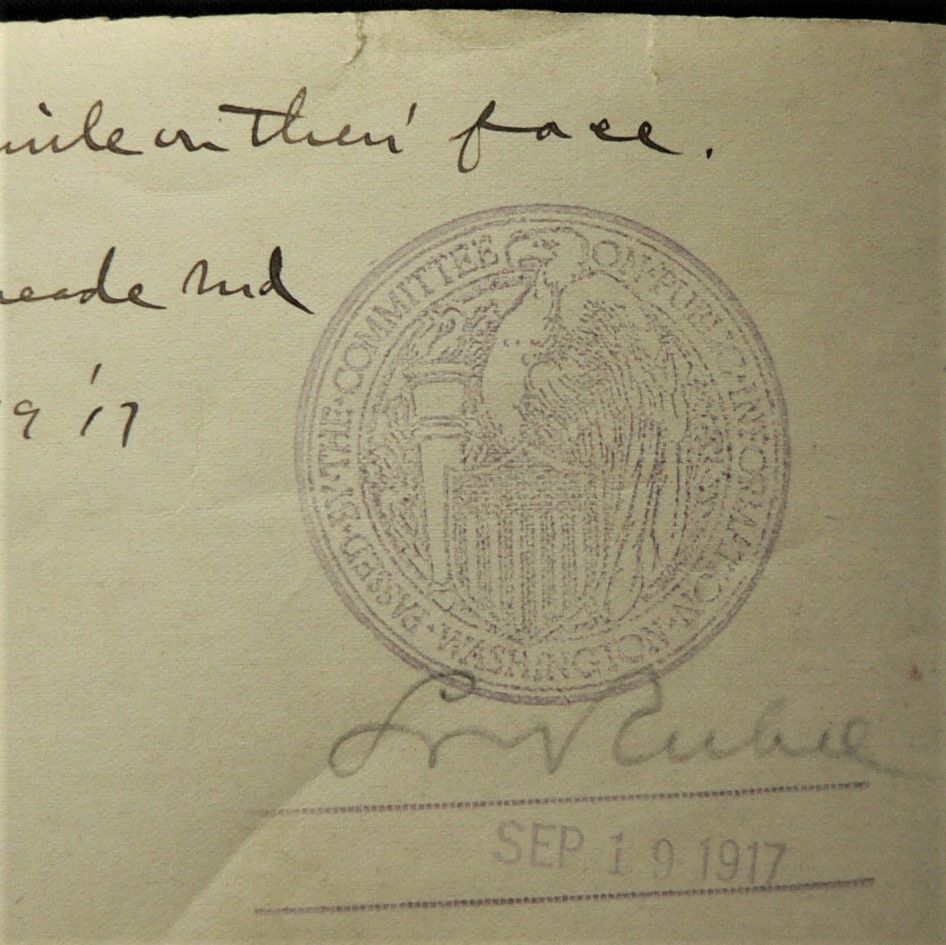 mile on their face.
meade Md
19 '17
PASSED·BY·THE·COMMITTEE ON·PUBLIC·INFORMATION·WASHINGTON·
SEP 19 1917